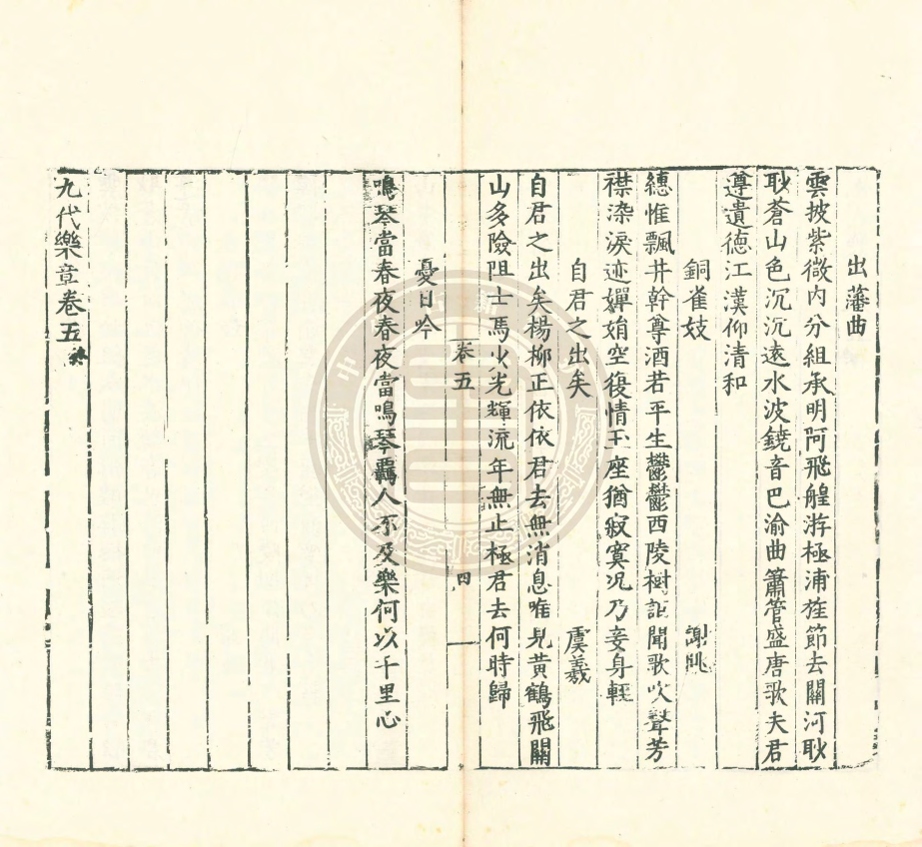 出藩曲
雲披紫微內分組承明阿飛艎游極浦旌節去關河耿
耿蒼山色沉沉遠水波鐃音巴渝曲簫管盛唐歌夫君
遵遺德江漢仰清和
銅雀妓 謝朓
繐惟飄井幹尊酒若平生鬱鬱西陵樹詎聞歌吹聲芳
襟染淚迹嬋娟空復情玉座猶寂寞况乃妾身輕
自君之出矣 虞羲
自君之出矣楊柳正依依君去無消息唯見黄鶴飛關
山多險阻士馬火光輝流年無止極君去何時歸
卷五 四
憂日吟
鳴琴當春夜春夜當鳴琴羈人不及樂何以千里心
九代樂章卷五終